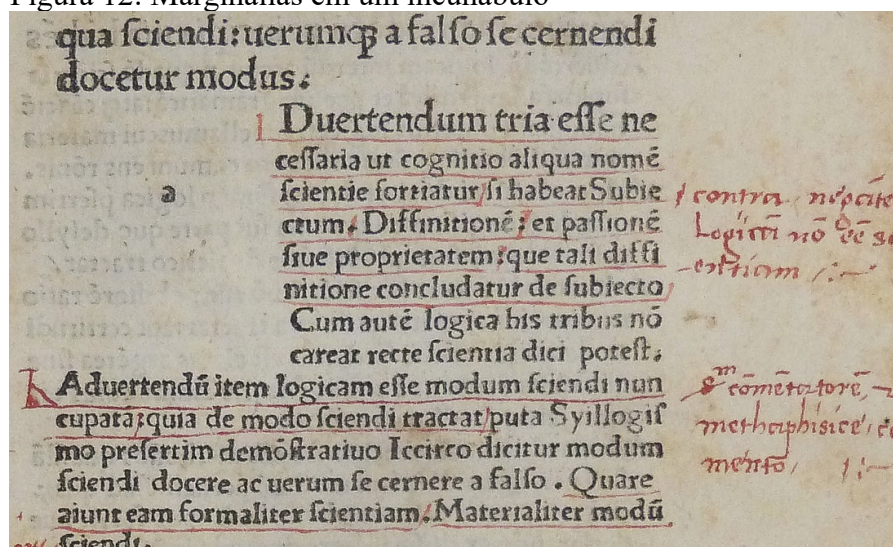 Figura 12: Marginálias em um incunábulo
qua ſciendi: uerumqꝫ a falſo ſe cernendi
docetur modus.
Duertendum tria eſſe ne
ceſſaria ut cognitio aliqua nomē
a
ſcientie ſortiatur / ſi habeat Subie
ctum. Diffinitionē; et paſſionē
ſiue proprietatem; que tali diffi
nitione concludatur de ſubiecto
Cum autē logica his tribus nō
careat recte ſcientia dici poteſt.
contra
Logicā nō eē
Aduertendū item logicam eſſe modum ſciendi nun
cupatā; quia de modo ſciendi tractat / puta Syillogiſ
mo preſertim demōſtratiuo Iccirco dicitur modum
ſciendi docere ac uerum ſe cernere a falſo . Quare
aiunt eam formaliter ſcientiam. Materialiter modū
ſciendi.
cōmētatorē
methaphisice